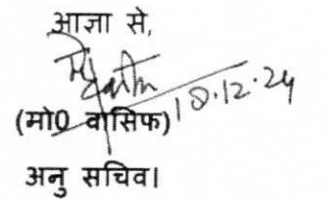 आज्ञा से,
18.12.24
(मो0 वासिफ)
अनु सचिव।